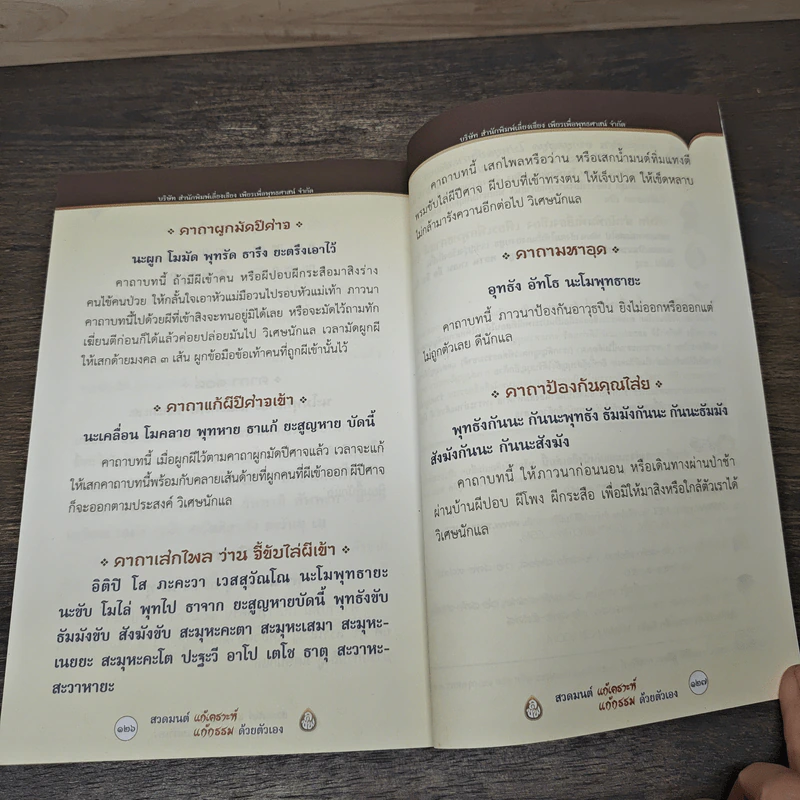 บริษัท สำนักพิมพ์เลี่ยงเชียง เพียรเพื่อพุทธศาสน์ จำกัด
คาถาผูกมัดปีศาจ
นะผูก โมมัด พุทรัด ธารึง ยะตรึงเอาไว้
คาถาบทนี้ ถ้ามีผีเข้าคน หรือผีปอบผีกระสือมาสิงร่าง
คนไข้คนป่วย ให้กลั้นใจเอาหัวแม่มือวนไปรอบหัวแม่เท้า ภาวนา
คาถาบทนี้ไปด้วยผีที่เข้าสิงจะทนอยู่มิได้เลย หรือจะมัดไว้ถามทัก
เฆี่ยนตีก่อนก็ได้แล้วค่อยปล่อยมันไป วิเศษนักแล เวลามัดผูกผี
ให้เสกด้ายมงคล ๓ เส้น ผูกข้อมือข้อเท้าคนที่ถูกผีเข้านั้นไว้
คาถาแก้ผีปีศาจเข้า
นะเคลื่อน โมคลาย พุทหาย ธาแก้ ยะสูญหาย บัดนี้
คาถาบทนี้ เมื่อผูกผีไว้ตามคาถาผูกมัดปีศาจแล้ว เวลาจะแก้
ให้เสกคาถาบทนี้พร้อมกับคลายเส้นด้ายที่ผูกคนที่ผีเข้าออก ผีปีศาจ
ก็จะออกตามประสงค์ วิเศษนักแล
คาถาเสกไพล ว่าน จี้ขับไล่ผีเข้า
อิติปิ โส ภะคะวา เวสสุวัณโณ นะโมพุทธายะ
นะขับ โมไล่ พุทไป ธาจาก ยะสูญหายบัดนี้ พุทธังขับ
ธัมมังขับ สังฆังขับ สะมุหะคะตา สะมุหะเสมา สะมุหะ-
เนยยะ สะมุหะคะโต ปะฐะวี อาโป เตโช ธาตุ สะวาหะ-
สะวาหายะ
๑๒๖ สวดมนต์ แก้เคราะห์ แก้กรรม ด้วยตัวเอง
บริษัท สำนักพิมพ์เลี่ยงเชียง เพียรเพื่อพุทธศาสน์ จำกัด
คาถาบทนี้ เสกไพลหรือว่าน หรือเสกน้ำมนต์ทิ่มแทงตี
พรมขับไล่ผีปีศาจ ผีปอบที่เข้าทรงตน ให้เจ็บปวด ให้เข็ดหลาบ
ไม่กล้ามารังควานอีกต่อไป วิเศษนักแล
คาถามหาอุด
อุทธัง อัทโธ นะโมพุทธายะ
คาถาบทนี้ ภาวนาป้องกันอาวุธปืน ยิงไม่ออกหรือออกแต่
ไม่ถูกตัวเลย ดีนักแล
คาถาป้องกันคุณไสย
พุทธังกันนะ กันนะพุทธัง ธัมมังกันนะ กันนะธัมมัง
สังฆังกันนะ กันนะสังฆัง
คาถาบทนี้ ให้ภาวนาก่อนนอน หรือเดินทางผ่านป่าช้า
ผ่านบ้านผีปอบ ผีโพง ผีกระสือ เพื่อมิให้มาสิงหรือใกล้ตัวเราได้
วิเศษนักแล
สวดมนต์ แก้เคราะห์ แก้กรรม ด้วยตัวเอง ๑๒๗